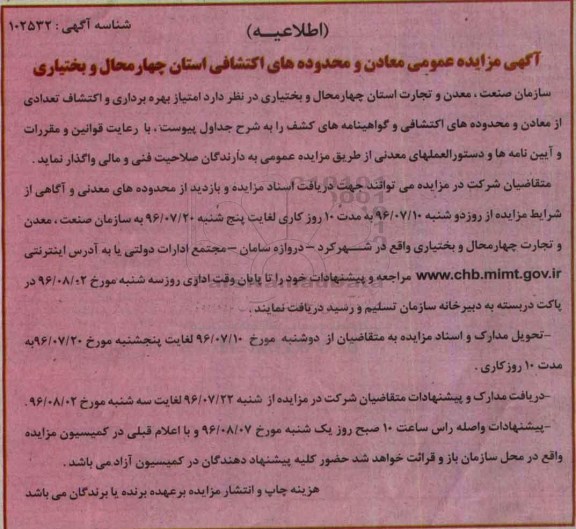 شناسه آگهی : ۱۰۲۵۳۲
(اطلاعیـــه)
آگهی مزایده عمومی معادن و محدوده های اکتشافی استان چهارمحال و بختیاری
سازمان صنعت ، معدن و تجارت استان چهارمحال و بختیاری در نظر دارد امتیاز بهره برداری و اکتشاف تعدادی
از معادن و محدوده های اکتشافی و گواهینامه های کشف را به شرح جداول پیوست ، با رعایت قوانین و مقررات
و آیین نامه ها و دستورالعملهای معدنی از طریق مزایده عمومی به دارندگان صلاحیت فنی و مالی واگذار نماید .
متقاضیان شرکت در مزایده می توانند جهت دریافت اسناد مزایده و بازدید از محدوده های معدنی و آگاهی از
شرایط مزایده از روزدو شنبه ۹۶/۰۷/۱۰ به مدت ۱۰ روز کاری لغایت پنج شنبه ۹۶/۰۷/۲۰ به سازمان صنعت ، معدن
و تجارت چهارمحال و بختیاری واقع در شـــهرکرد – دروازه سامان – مجتمع ادارات دولتی یا به آدرس اینترنتی
www.chb.mimt.gov.ir مراجعه و پیشنهادات خود را تا پایان وقت اداری روزسه شنبه مورخ ۹۶/۰۸/۰۲ در
پاکت دربسته به دبیرخانه سازمان تسلیم و رسید دریافت نمایند .
-تحویل مدارک و اسناد مزایده به متقاضیان از دوشنبه مورخ ۹۶/۰۷/۱۰ لغایت پنجشنبه مورخ ۹۶/۰۷/۲۰به
مدت ۱۰ روزکاری .
-دریافت مدارک و پیشنهادات متقاضیان شرکت در مزایده از شنبه ۹۶/۰۷/۲۲ لغایت سه شنبه مورخ ۹۶/۰۸/۰۲ .
-پیشنهادات واصله راس ساعت ۱۰ صبح روز یک شنبه مورخ ۹۶/۰۸/۰۷ و با اعلام قبلی در کمیسیون مزایده
واقع در محل سازمان باز و قرائت خواهد شد حضور کلیه پیشنهاد دهندگان در کمیسیون آزاد می باشد .
هزینه چاپ و انتشار مزایده برعهده برنده یا برندگان می باشد